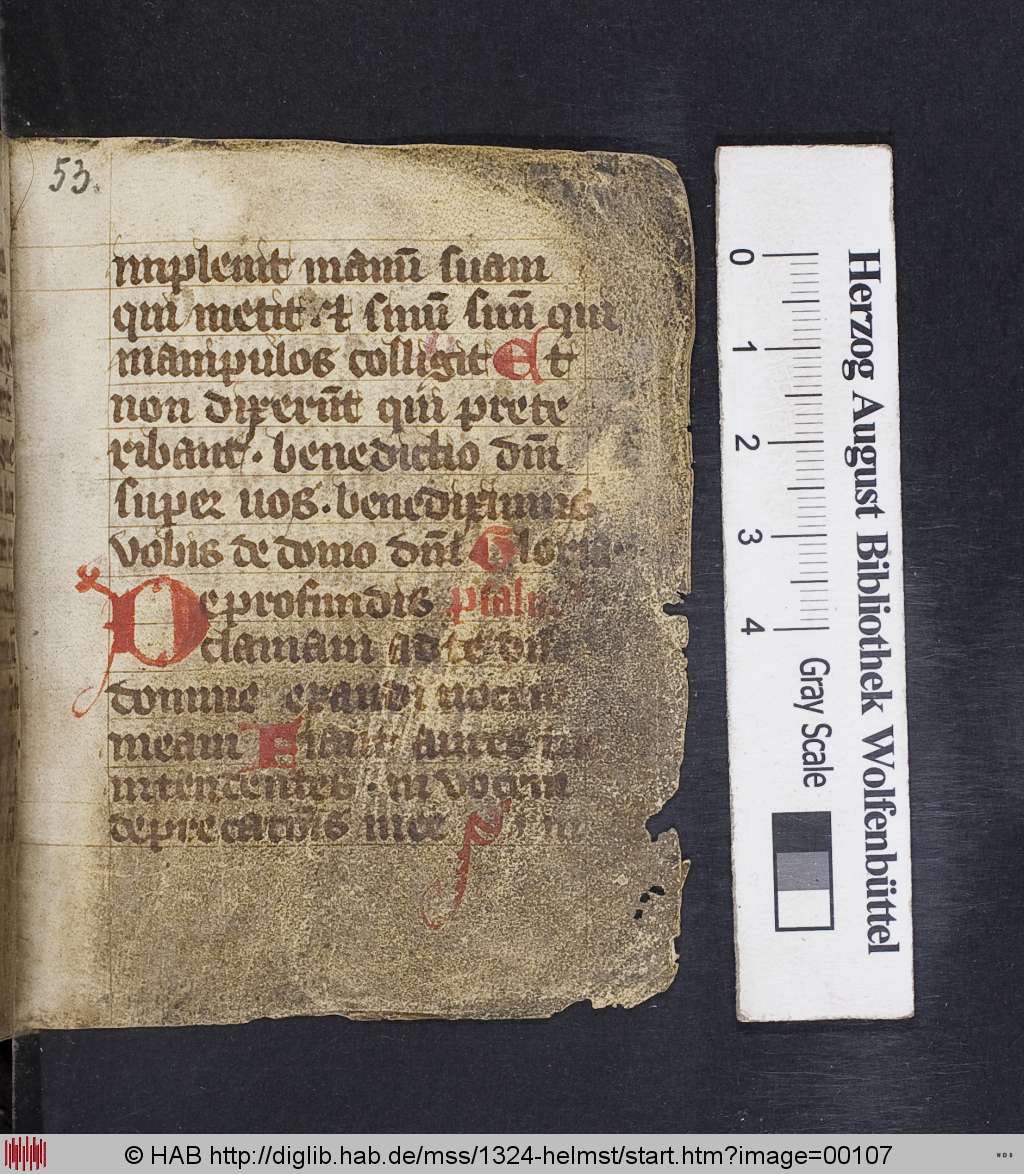 53.
implevit manū suam
qui metit. Et sinū suū qui
manipulos colligit Et
non dixerūt qui prete
ribant. benedictio dn̄i
super vos. benediximus
vobis de domo dn̄i Gloria
De profundis psalm
clamavi ad te
domine exaudi vocem
meam Fiant aures
intendentes. in vocem
deprecatiōis mee
Herzog August Bibliothek Wolfenbüttel
0 1 2 3 4 Gray Scale
© HAB http://diglib.hab.de/mss/1324-helmst/start.htm?image=00107